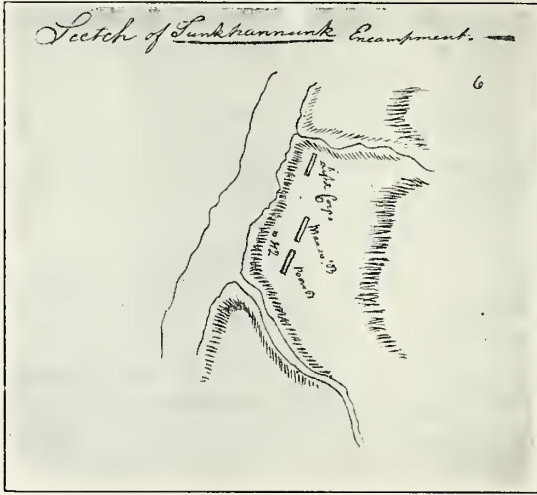 Scetch of Tunkhannunk Encampment.
6
Light Corps
Maxw. B
Poors B